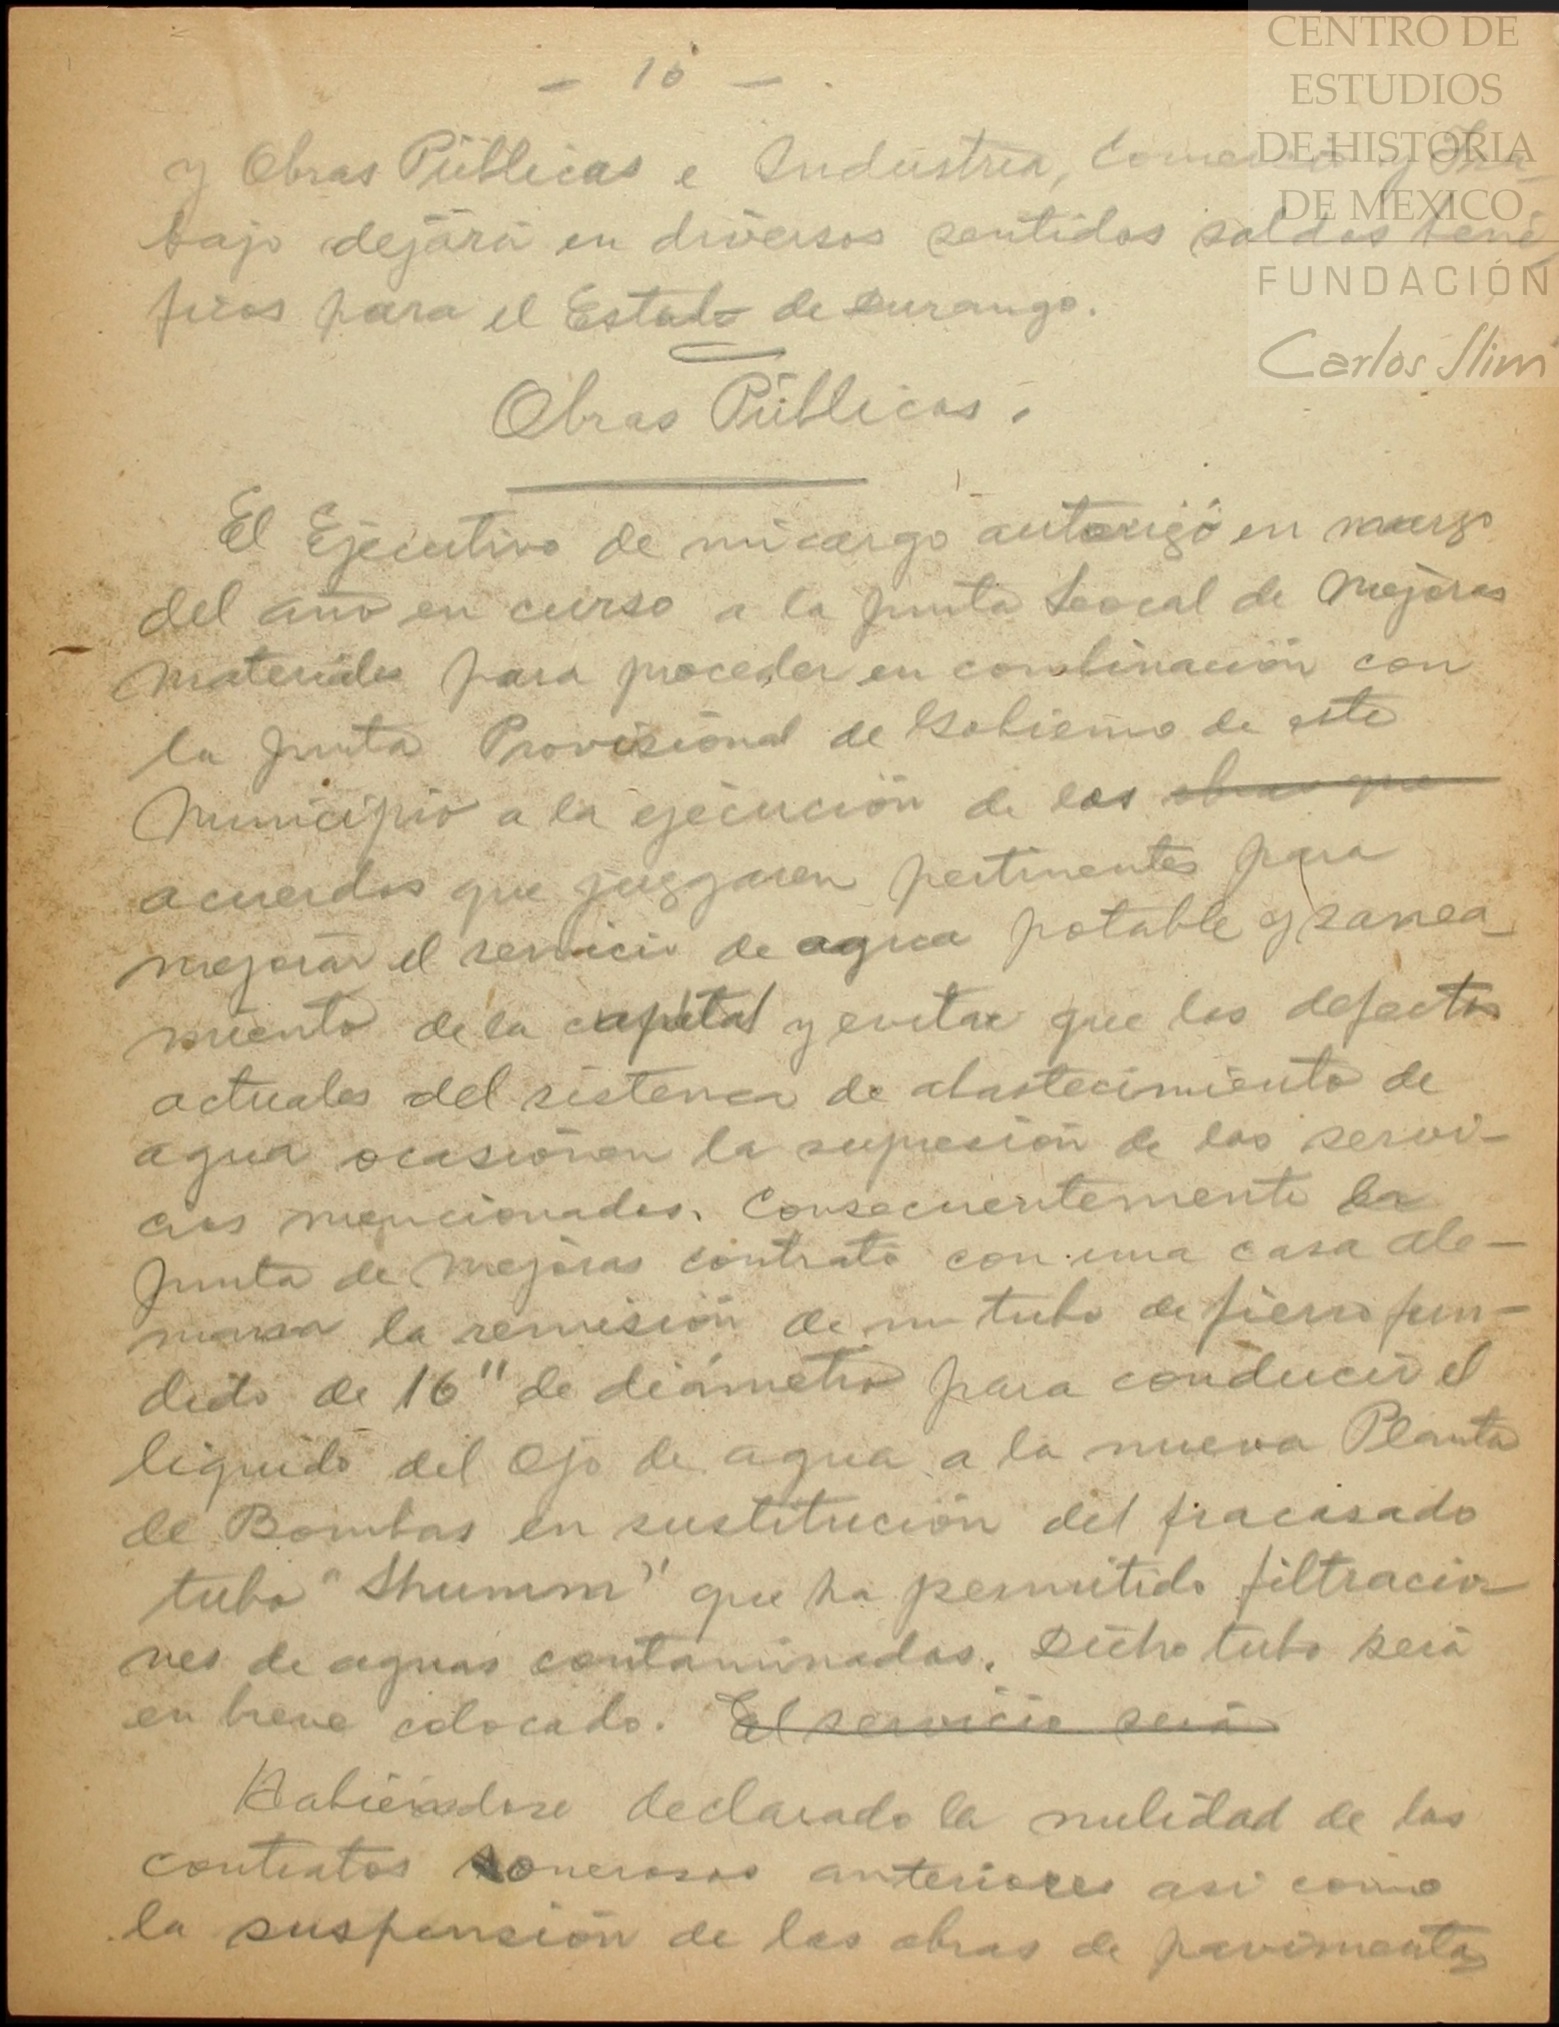 CENTRO DE
ESTUDIOS
DE HISTORIA
DE MEXICO
FUNDACIÓN
Carlos Slim
- 16 -
y Obras Públicas e Industria, Comercio y Tra-
bajo dejará en diversos sentidos saldos bené
ficos para el Estado de Durango.
Obras Públicas.
El Ejecutivo de mi cargo autorizó en marzo
del año en curso a la Junta Local de Mejoras
Materiales para proceder en combinación con
la Junta Provisional de Gobierno de este
Municipio a la ejecución de los obras que
acuerdos que juzgaren pertinentes para
mejorar el servicio de agua potable y sanea_
miento de la capital y evitar que los defectos
actuales del sistema de abastecimiento de
agua ocasionen la supresión de los servi-
cios mencionados. Consecuentemente la
Junta de Mejoras contrató con una casa ale-
mana la remisión de un tubo de fierro fun-
dido de 16" de diámetro para conducir el
líquido del Ojo de agua a la nueva Planta
de Bombas en sustitución del fracasado
tubo "Shumm" que ha permitido filtracio-
nes de aguas contaminadas. Dicho tubo será
en breve colocado. El servicio será
Habiéndose declarado la nulidad de los
contratos onerosos anteriores asi como
la suspensión de las obras de pavimenta